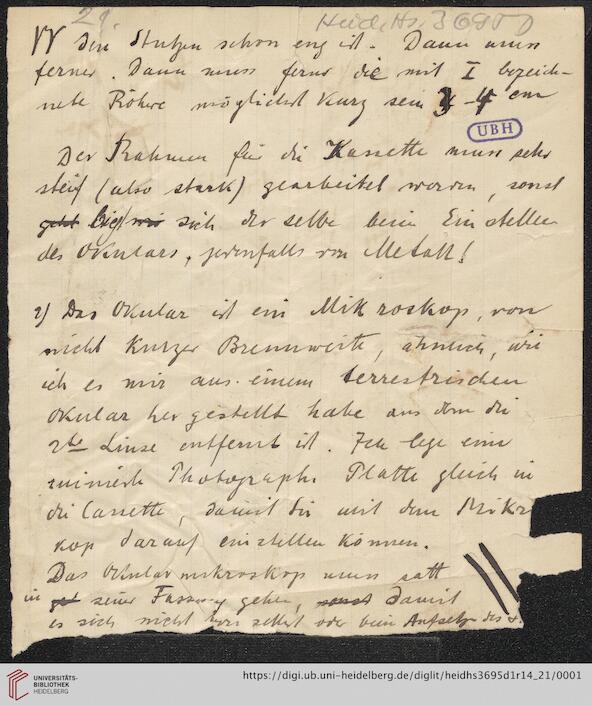 29.
Heid. Hs. 3695 D
der Stutzen schon eng ist. Dann muss
ferner. Dann muss ferner die mit I bezeich-
nete Röhre möglichst kurz sein 3 - 4 cm
UBH
Der Rahmen für die Kassette muss sehr
steif (also stark) gearbeitet werden, sonst
biegt sich der selbe beim Einstellen
des Okulars, jedenfalls von Metall!
2) Das Okular ist ein Mikroskop, von
nicht kurzer Brennweite, ähnlich, wie
ich es mir aus einem terrestrischen
Okular hergestellt habe aus dem die
2te Linse entfernt ist. Ich lege eine
ruinierte Photograph. Platte gleich in
die Cassette, damit Sie mit dem Mikr
kop darauf einstellen können.
Das Okularmikroskop muss satt
in seiner Fassung gehen, damit
es sich nicht von selbst oder beim Aufsetzen des
UNIVERSITÄTS-
BIBLIOTHEK
HEIDELBERG
https://digi.ub.uni-heidelberg.de/diglit/heidhs3695d1r14_21/0001